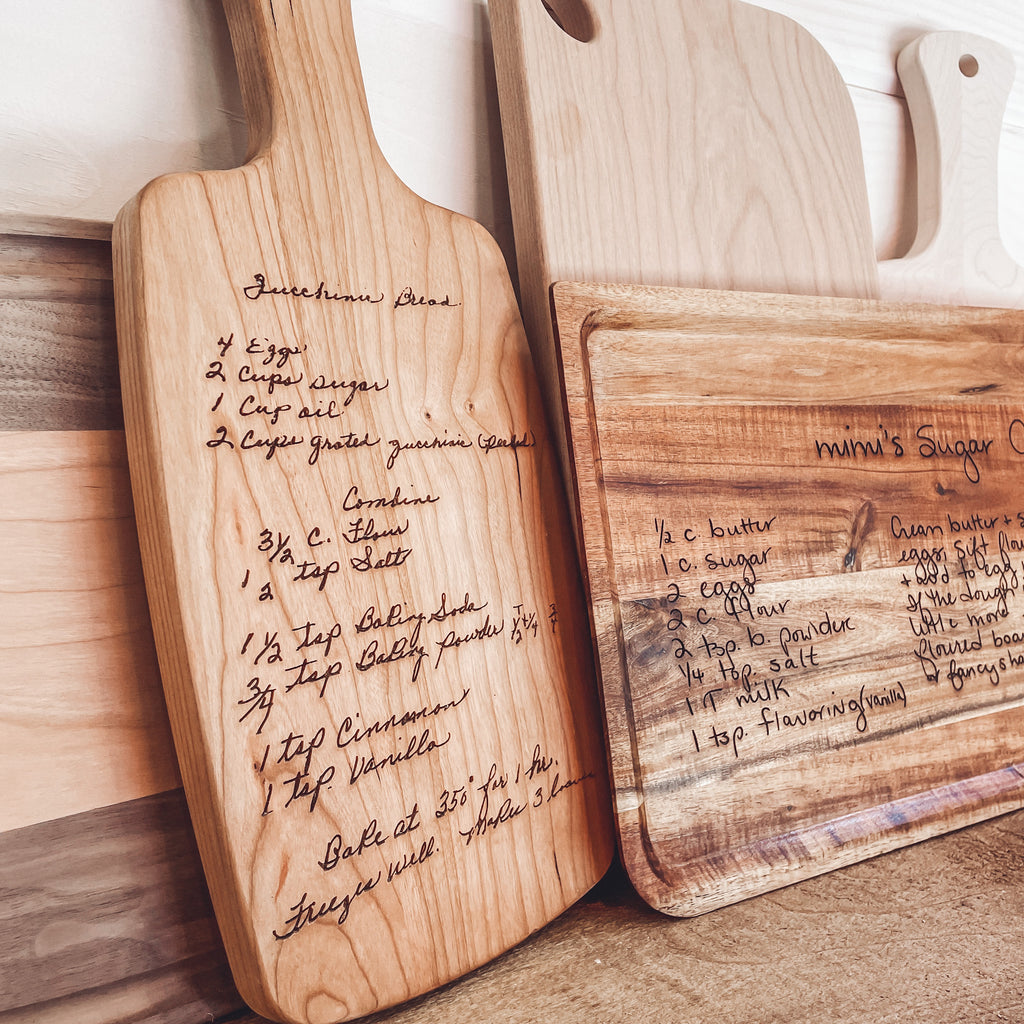 Zucchini Bread.
4 Eggs
2 Cups Sugar
1 Cup oil
2 Cups grated zucchinie (Peeled)
Combine
3 1/2 c. Flour
1/2 tsp Salt
1 1/2 tsp Baking Soda
3/4 tsp Baking powder
1 tsp Cinnamon
1 tsp. Vanilla
Bake at 350° for 1 hr.
Freezes well. Makes 3 loaves
mimi's Sugar
1/2 c. butter
1 c. sugar
2 eggs
2 c. flour
2 tsp. b. powder
1/4 tsp. salt
1 T milk
1 tsp. flavoring (vanilla)
Cream butter +
eggs, sift flour
+ add to egg
If the dough
little more
floured boa
fancy sha